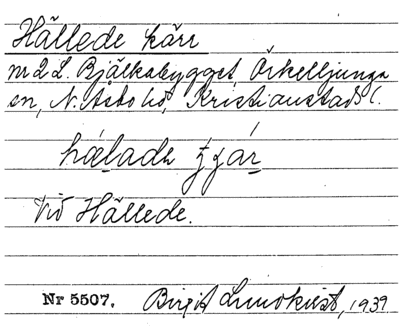 Hällede kärr
nr 2 L. Bjälkabygget, Örkelljunga
sn, N. Åsbo hd, Kristianstads l.
hæladə tʃár
Vid Hällede.
Nr 5507. Birgit Lindkvist, 1939.